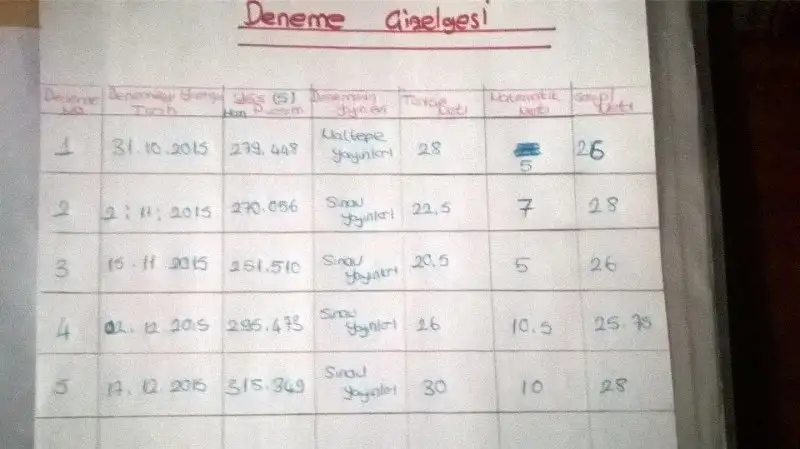 Deneme Çizelgesi
Deneme No Denemenin Tarih YGS (S) Ham Puanım Denemenin Yayınevi Türkçe Neti Matematik Neti Sosyal Neti
1 31.10.2015 279.448 Maltepe Yayınları 28 5 26
2 2.11.2015 270.056 Sınav Yayınları 22,5 7 28
3 15.11 2015 251.510 Sınav Yayınları 20,5 5 26
4 02.12 2015 295.473 Sınav Yayınları 26 10.5 25.75
5 17.12.2015 315.349 Sınav Yayınları 30 10 28